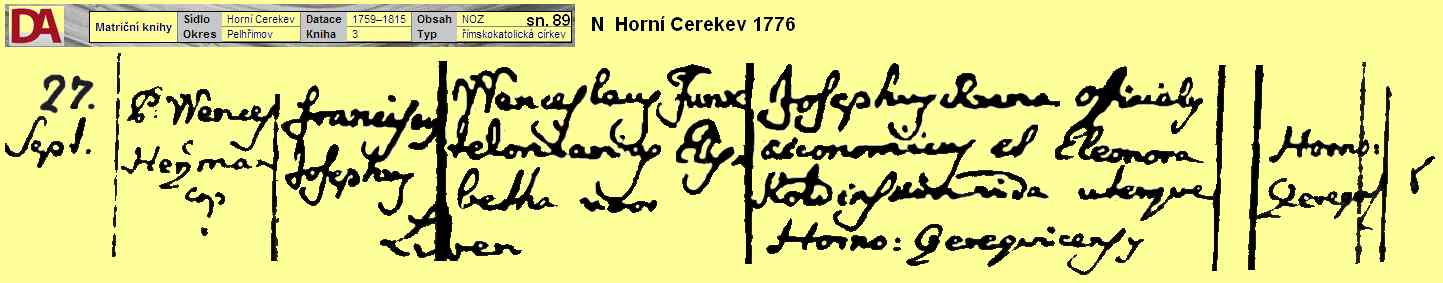 DA Matriční knihy Sídlo Horní Cerekev Datace 1759–1815 Obsah NOZ sn. 89
Okres Pelhřimov Kniha 3 Typ římskokatolická církev
N Horní Cerekev 1776
27.
Sept.
P. Wences
Heÿman
cop
Franciscus
Josephus
Liben
Wenceslaus Funx
telonarius Elÿs
betha uxor
Josephus officialis
oeconomicus et Eleonora
uterque
Horno: Qereqvicensÿ
Horno: